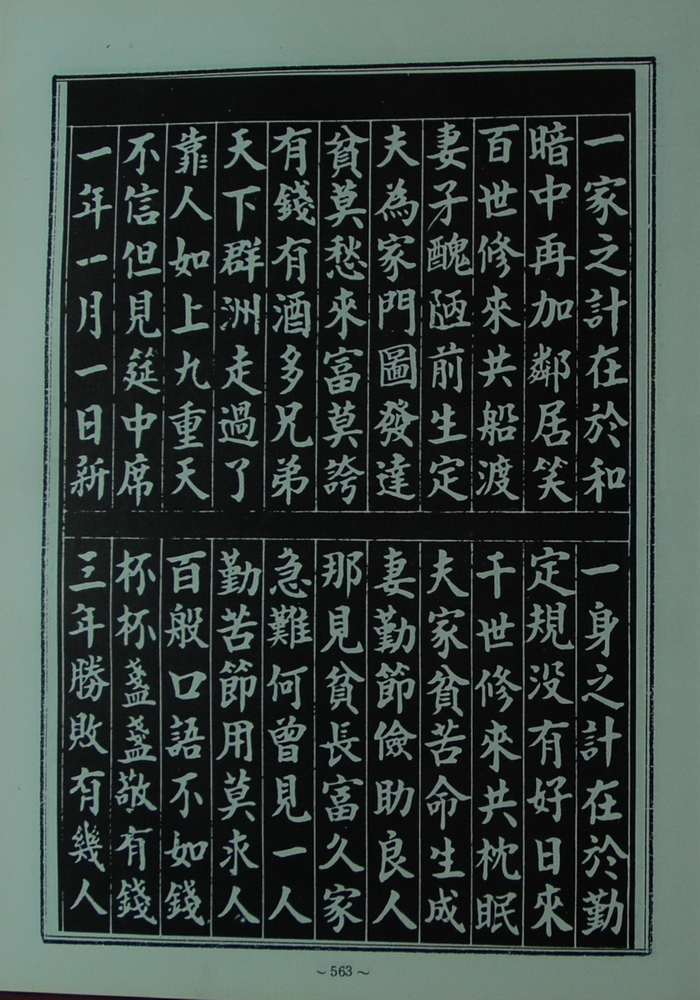 一家之計在於和
一身之計在於勤
暗中再加鄰居笑
定規没有好日來
百世修來共船渡
千世修來共枕眠
妻子醜陋前生定
夫家貧苦命生成
夫為家門圖發達
妻勤節儉助良人
貧莫愁來富莫誇
那見貧長富久家
有錢有酒多兄弟
急難何曾見一人
天下群洲走過了
勤苦節用莫求人
靠人如上九重天
百般口語不如錢
不信但見筵中席
杯杯盞盞敬有錢
一年一月一日新
三年勝敗有幾人
~563~